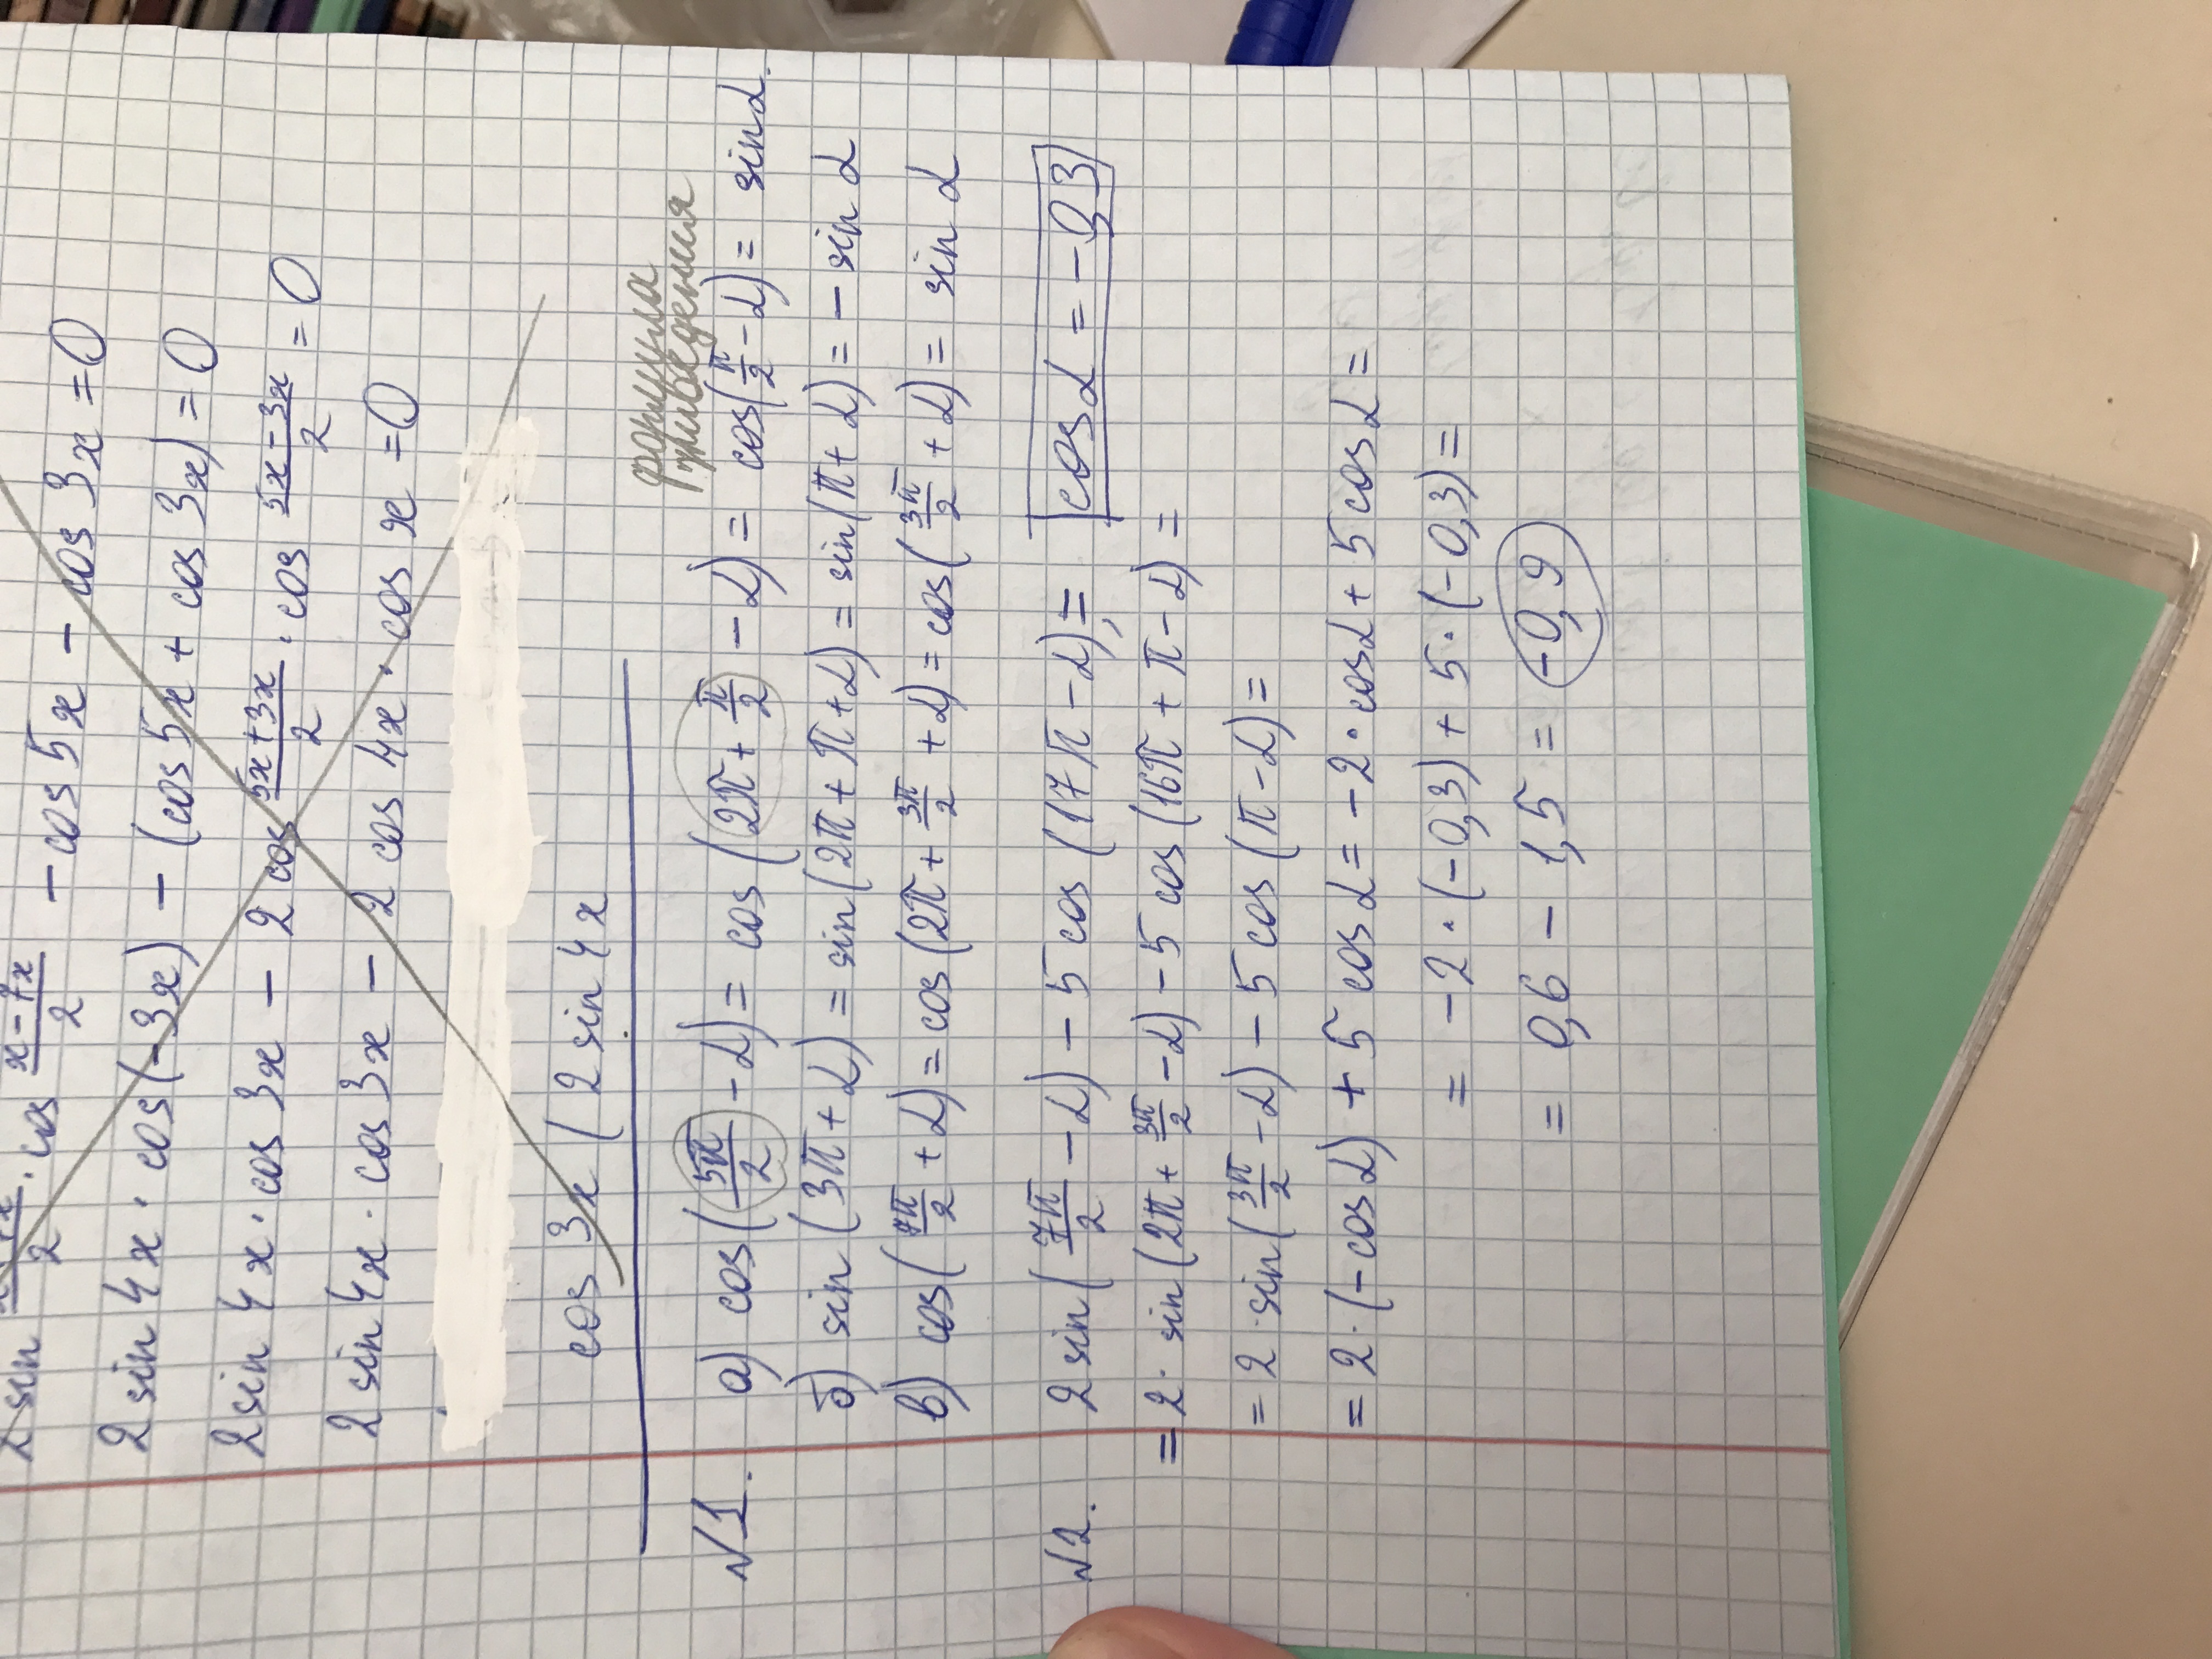 2 sin x+7x/2 · cos x−7x/2 − cos 5x − cos 3x = 0
2 sin 4x · cos (−3x) − (cos 5x + cos 3x) = 0
2 sin 4x · cos 3x − 2 cos 5x+3x/2 · cos 5x−3x/2 = 0
2 sin 4x · cos 3x − 2 cos 4x · cos x = 0
cos 3x ( 2 sin 4x
формула
приведения
№1. а) cos (5π/2 − α) = cos (2π + π/2 − α) = cos(π/2 − α) = sin α.
б) sin (3π + α) = sin (2π + π + α) = sin (π + α) = − sin α
в) cos (7π/2 + α) = cos (2π + 3π/2 + α) = cos (3π/2 + α) = sin α
№2. 2 sin (7π/2 − α) − 5 cos (17π − α), = cos α = −0,3
= 2 · sin (2π + 3π/2 − α) − 5 cos (16π + π − α) =
= 2 · sin (3π/2 − α) − 5 cos (π − α) =
= 2 · (− cos α) + 5 cos α = −2 · cos α + 5 cos α =
= −2 · (−0,3) + 5 · (−0,3) =
= 0,6 − 1,5 = −0,9